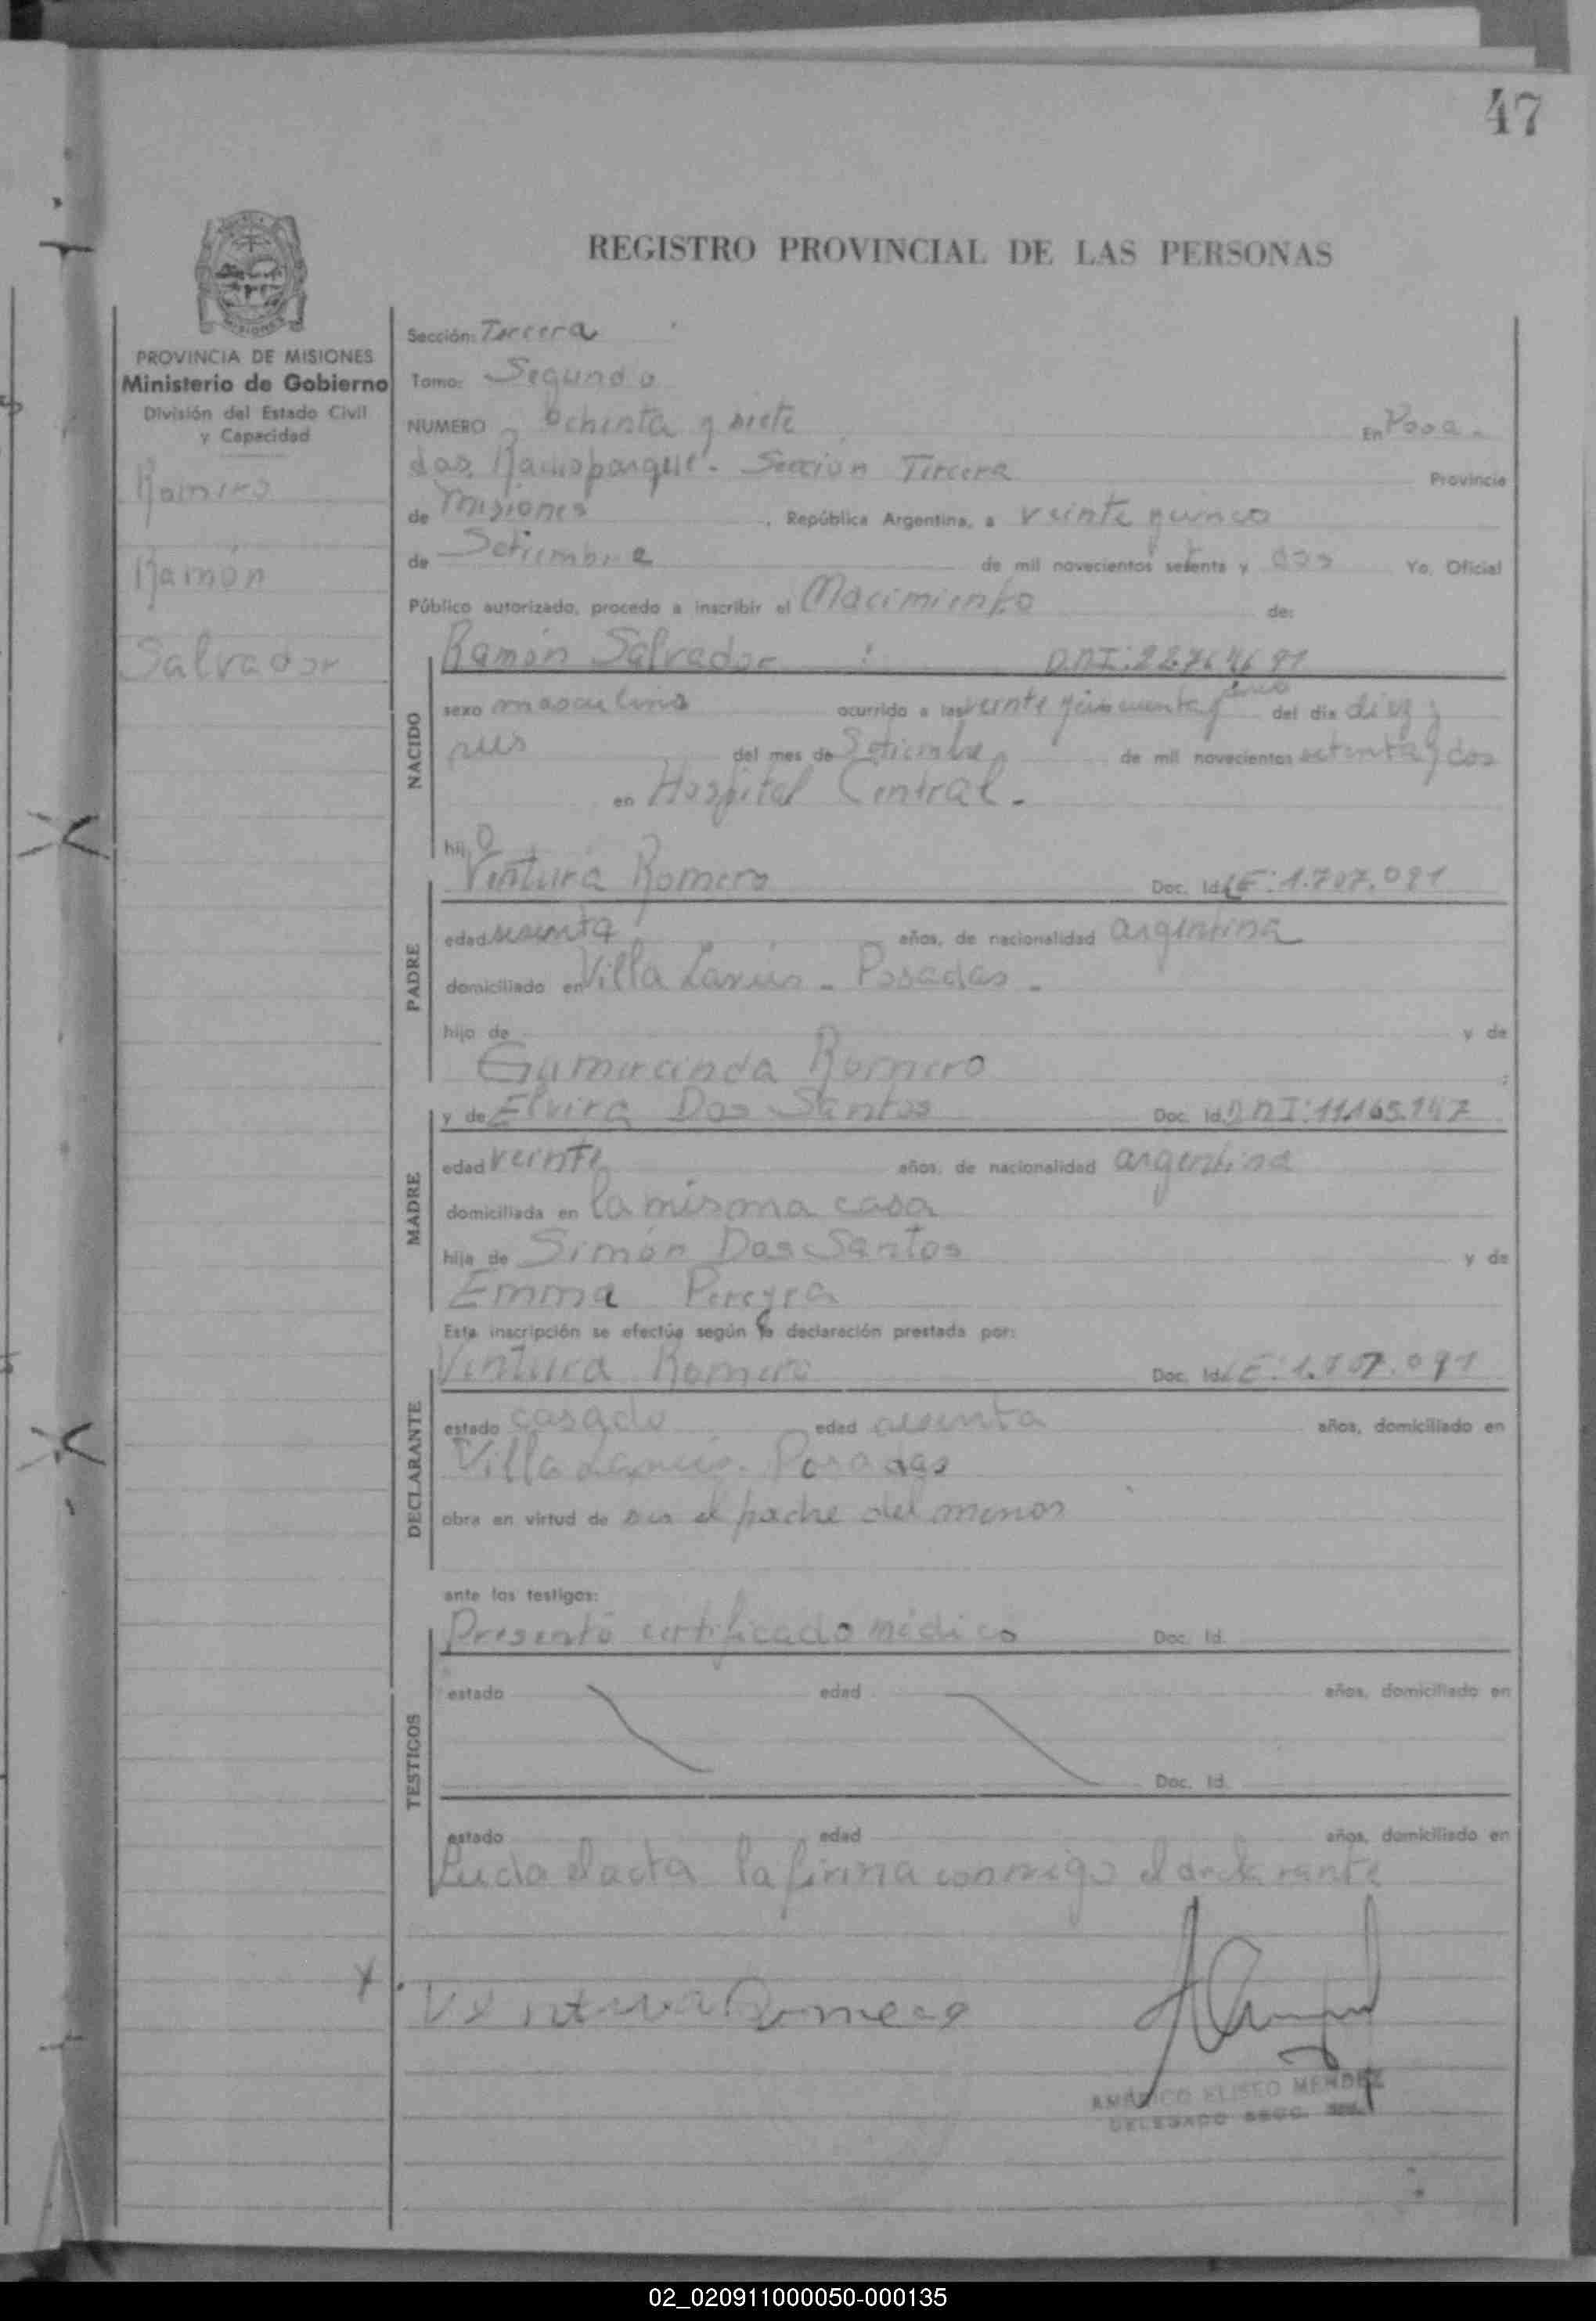 47
REGISTRO PROVINCIAL DE LAS PERSONAS
PROVINCIA DE MISIONES
Ministerio de Gobierno
División del Estado Civil
y Capacidad
Romero
Ramón
Salvador
Sección: Tercera
Tomo: Segundo
NUMERO Ochenta y siete En Posa-
das, Sección Tercera Provincia
de Misiones, República Argentina, a veinte y cinco
de Setiembre de mil novecientos setenta y dos Yo, Oficial
Público autorizado, procedo a inscribir el Nacimiento de:
NACIDO
Ramón Salvador D.N.I:
sexo masculino ocurrido a las veinte y cincuenta y cinco del día diez y
seis del mes de Setiembre de mil novecientos setenta y dos
en Hospital Central.-
hijo
PADRE
Ventura Romero Doc. Id. LE: 1.707.091
edad sesenta años, de nacionalidad argentina
domiciliado en Villa Lanús - Posadas -
hijo de y de
Gumercinda Romero
MADRE
y de Elvira Dos Santos Doc. Id. DNI:
edad veinte años, de nacionalidad argentina
domiciliada en la misma casa
hija de Simón Dos Santos y de
Emma Pereyra
Esta inscripción se efectúa según la declaración prestada por:
DECLARANTE
Ventura Romero Doc. Id. LE: 1.707.091
estado casado edad sesenta años, domiciliado en
Villa Lanús. Posadas
obra en virtud de ser el padre del menor
ante los testigos:
TESTIGOS
Presentó certificado médico Doc. Id.
estado edad años, domiciliado en
Doc. Id.
estado edad años, domiciliado en
Leida el acta la firma conmigo el declarante
Ventura Romero
AMÉRICO ELISEO MENDEZ
DELEGADO SECC.
02_020911000050-000135